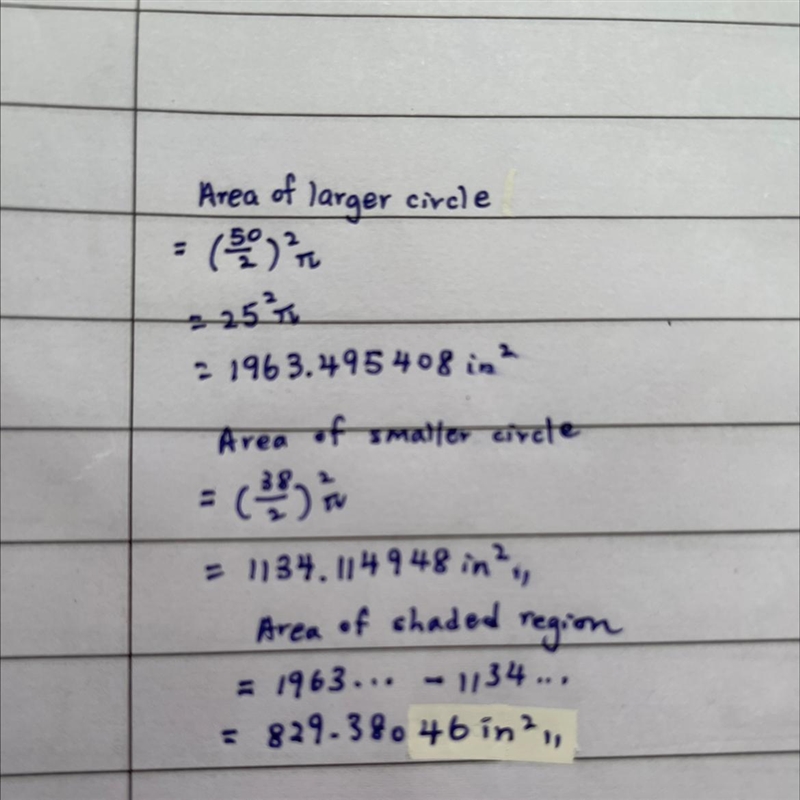 Area of larger circle
= (50/2)²π
= 25²π
= 1963.495408 in²
Area of smaller circle
= (38/2)²π
= 1134.114948 in²,,
Area of shaded region
= 1963... - 1134...
= 829.38046 in²,,